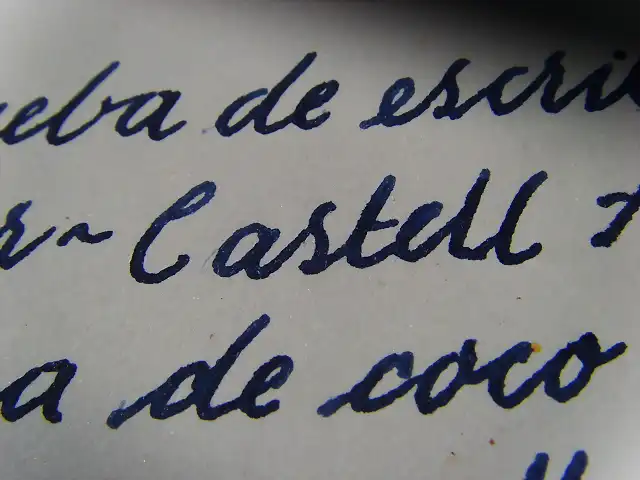 ueba de escrib
r-Castell
a de coco